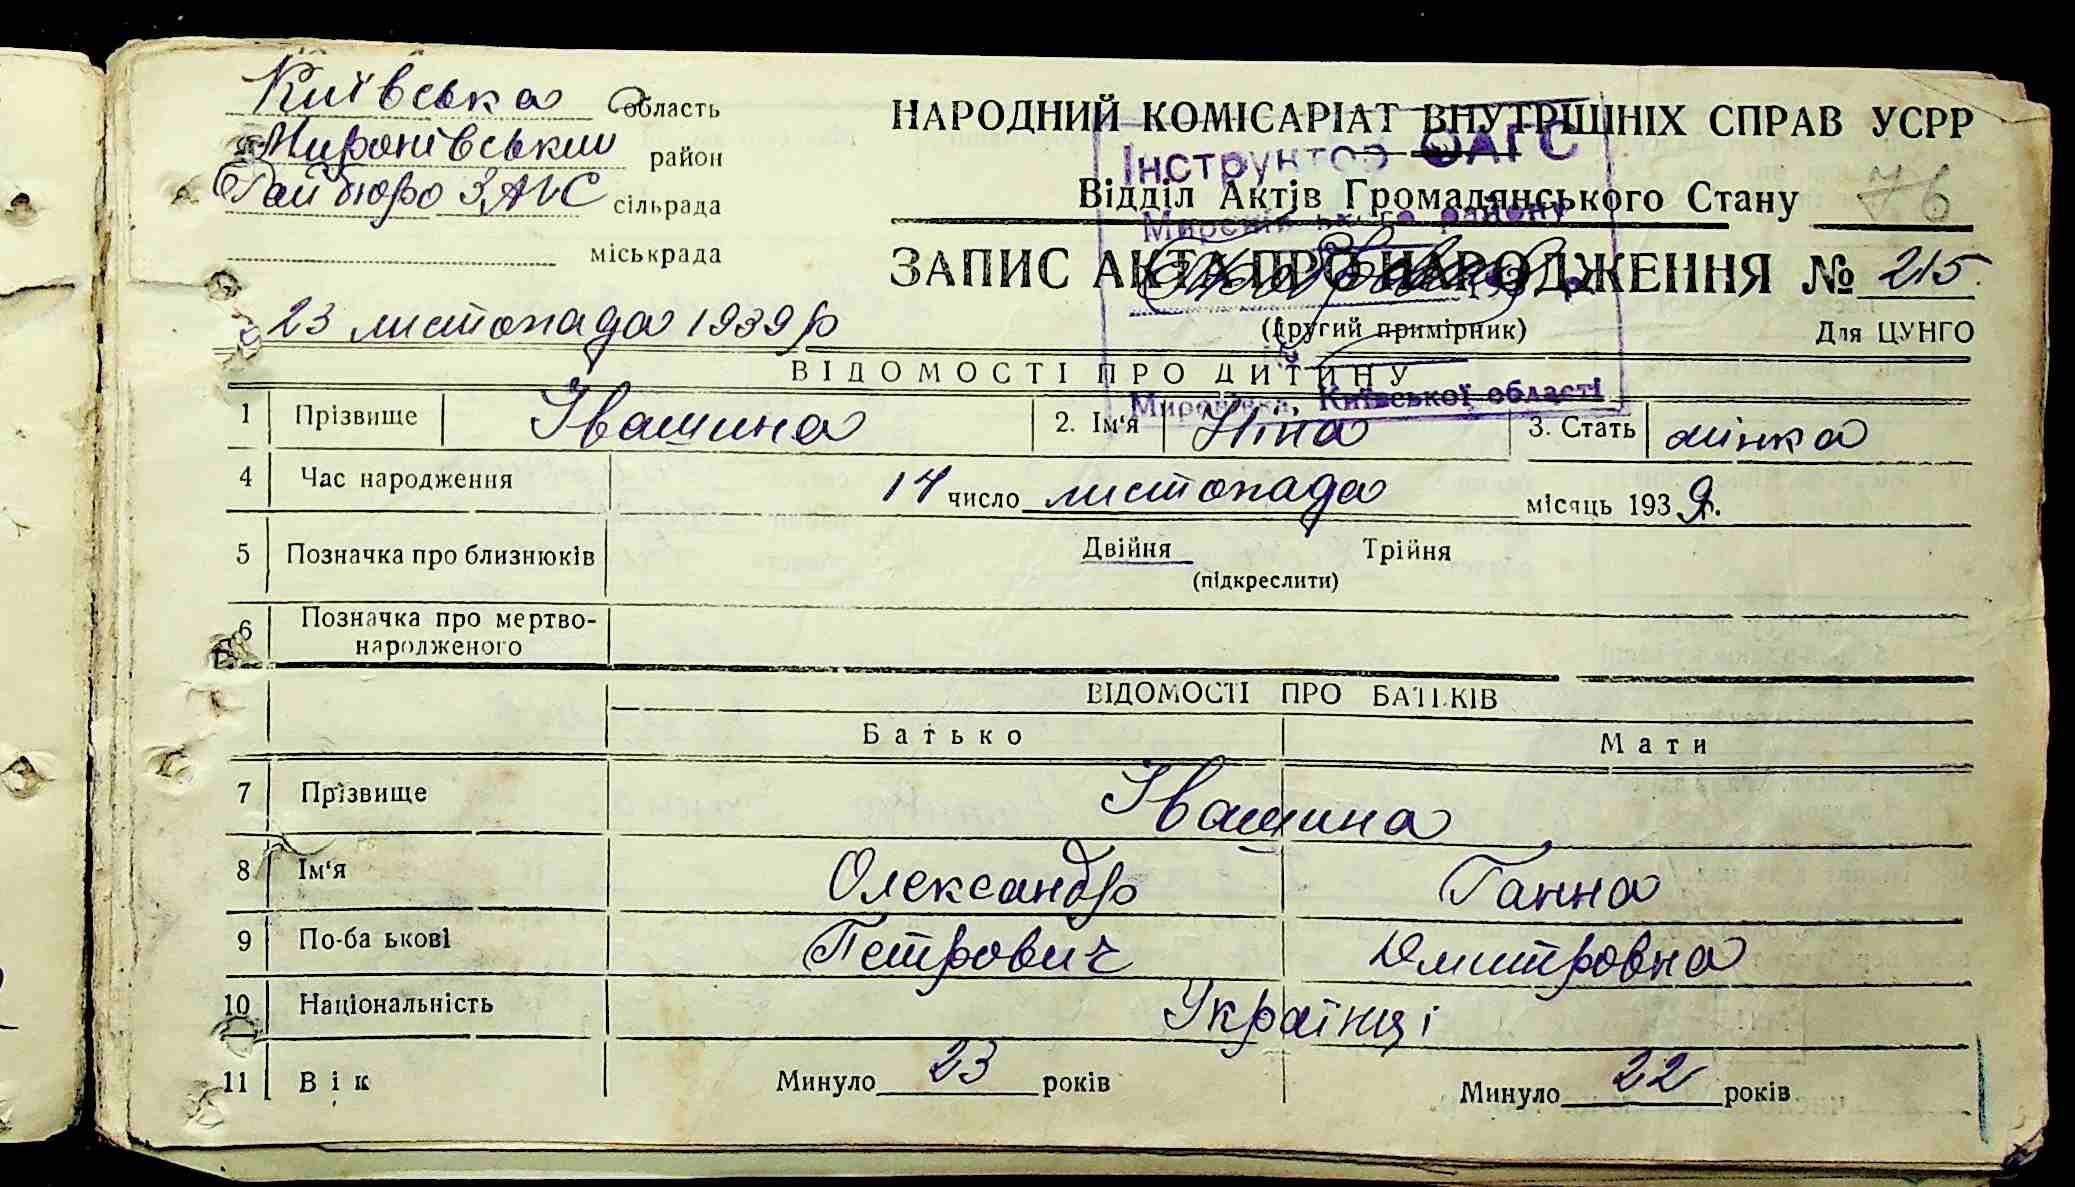 Київська область
Миронівський район
Райбюро ЗАГС сільрада
міськрада
НАРОДНИЙ КОМІСАРІАТ ВНУТРІШНІХ СПРАВ УСРР
Інструктор ОАГС
Відділ Актів Громадянського Стану 76
району
ЗАПИС АКТА ПРО НАРОДЖЕННЯ № 215
23 листопада 1939 р
(другий примірник) Для ЦУНГО
ВІДОМОСТІ ПРО ДИТИНУ
Миронівка, Київської області
1 Прізвище Івашина 2. Ім'я Ніна 3. Стать жінка
4 Час народження 14 число листопада місяць 1939 р.
5 Позначка про близнюків Двійня Трійня
(підкреслити)
6 Позначка про мертво-
народженого
ВІДОМОСТІ ПРО БАТЬКІВ
Батько Мати
7 Прізвище Івашина
8 Ім'я Олександр Ганна
9 По-ба ькові Петрович Дмитровна
10 Національність Українці
11 Вік Минуло 23 років Минуло 22 років